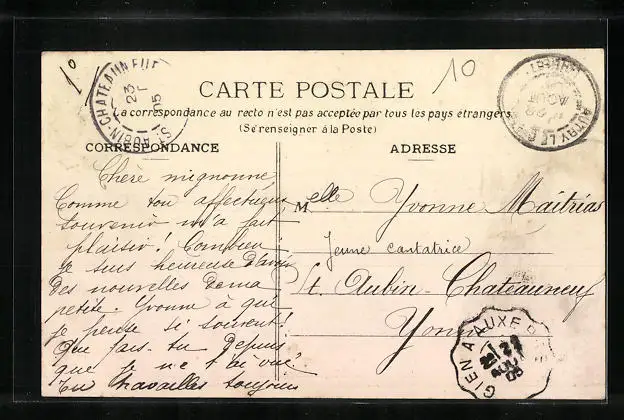 1°
10
CARTE POSTALE
La correspondance au recto n'est pas acceptée par tous les pays étrangers
(Se renseigner à la Poste)
CORRESPONDANCE
ADRESSE
Chère mignonne
Comme ton affectueux
souvenir m'a fait
plaisir! Combien
je suis heureuse d'avoir
des nouvelles de ma
petite Yvonne à qui
je pense si souvent!
Que fais-tu depuis
que je ne t'ai vue?
Tu travailles toujours
Melle Yvonne Maitrias
Jeune cantatrice
St. Aubin-Chateauneuf
Yonne
AUBIN-CHATEAUNEUF
23
05
AUTRY-LE
LOIRET
AOUT
GIEN A AUXERRE
22
AOUT
05